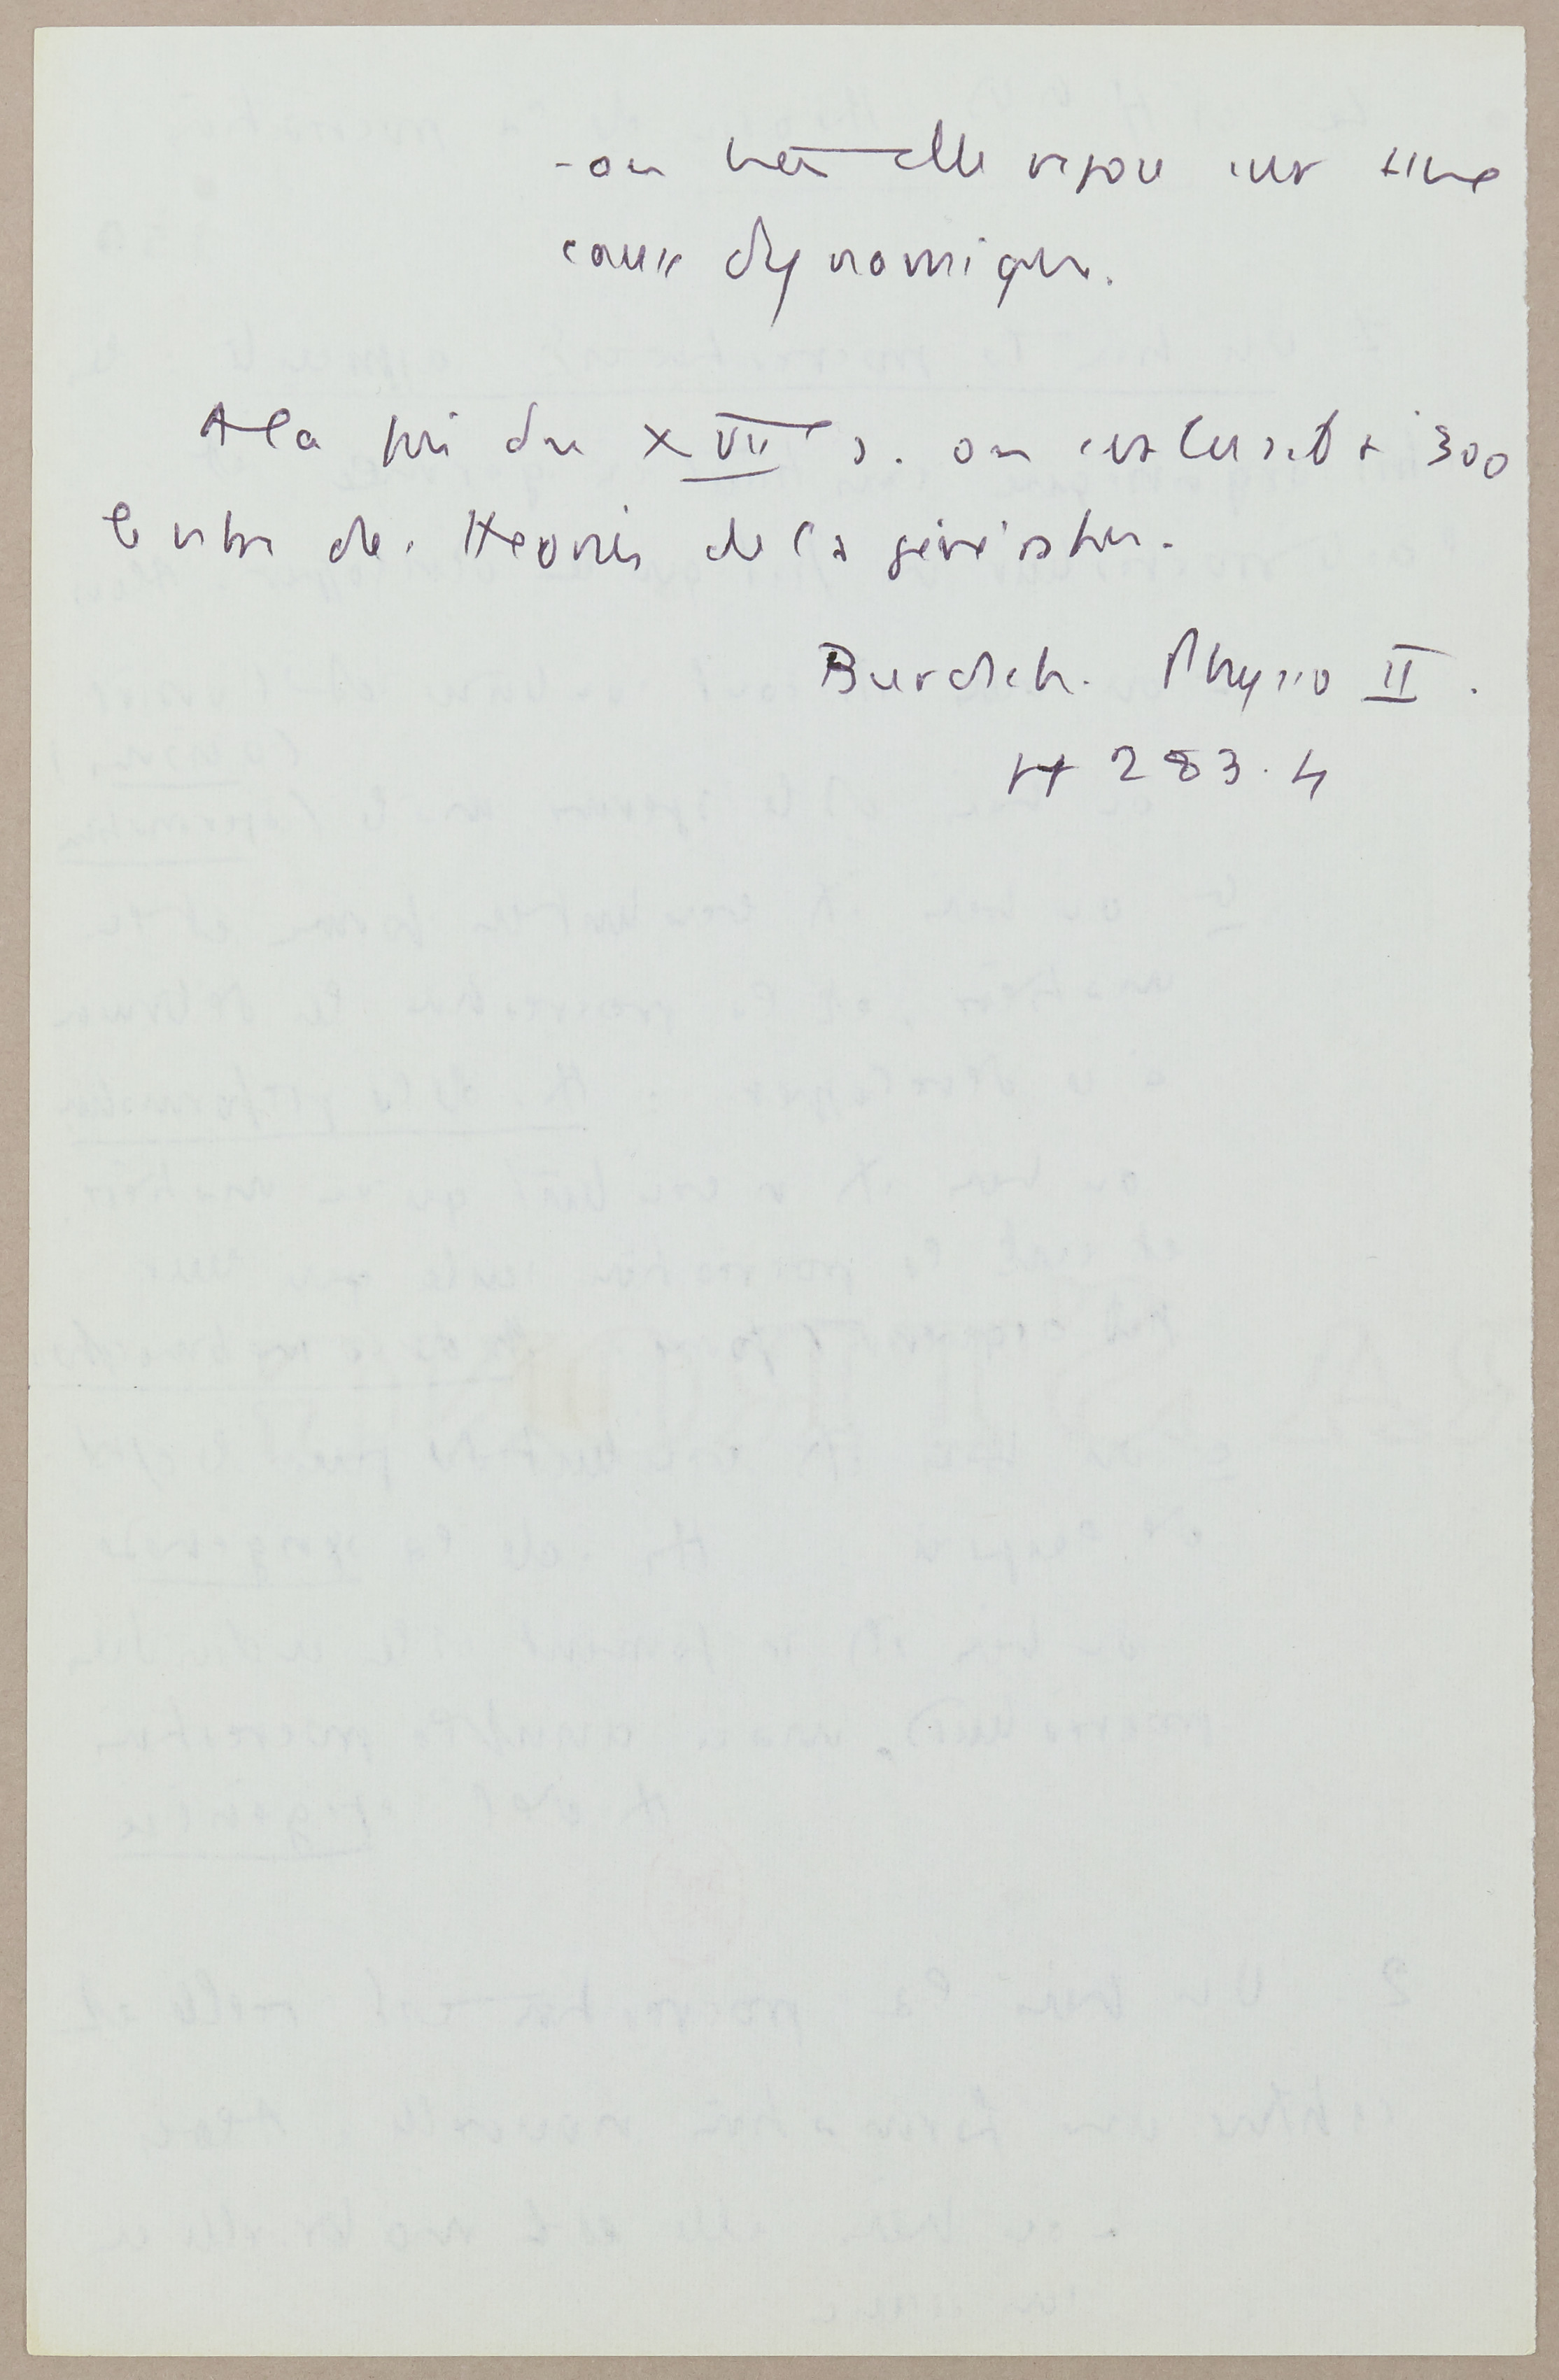 - ou bien elle repose sur une
cause dynamique.
A la fin du XVIIe s. on évaluait à 300
le nbre des théories de la génération.
Burdach. Physio II.
H 283.4